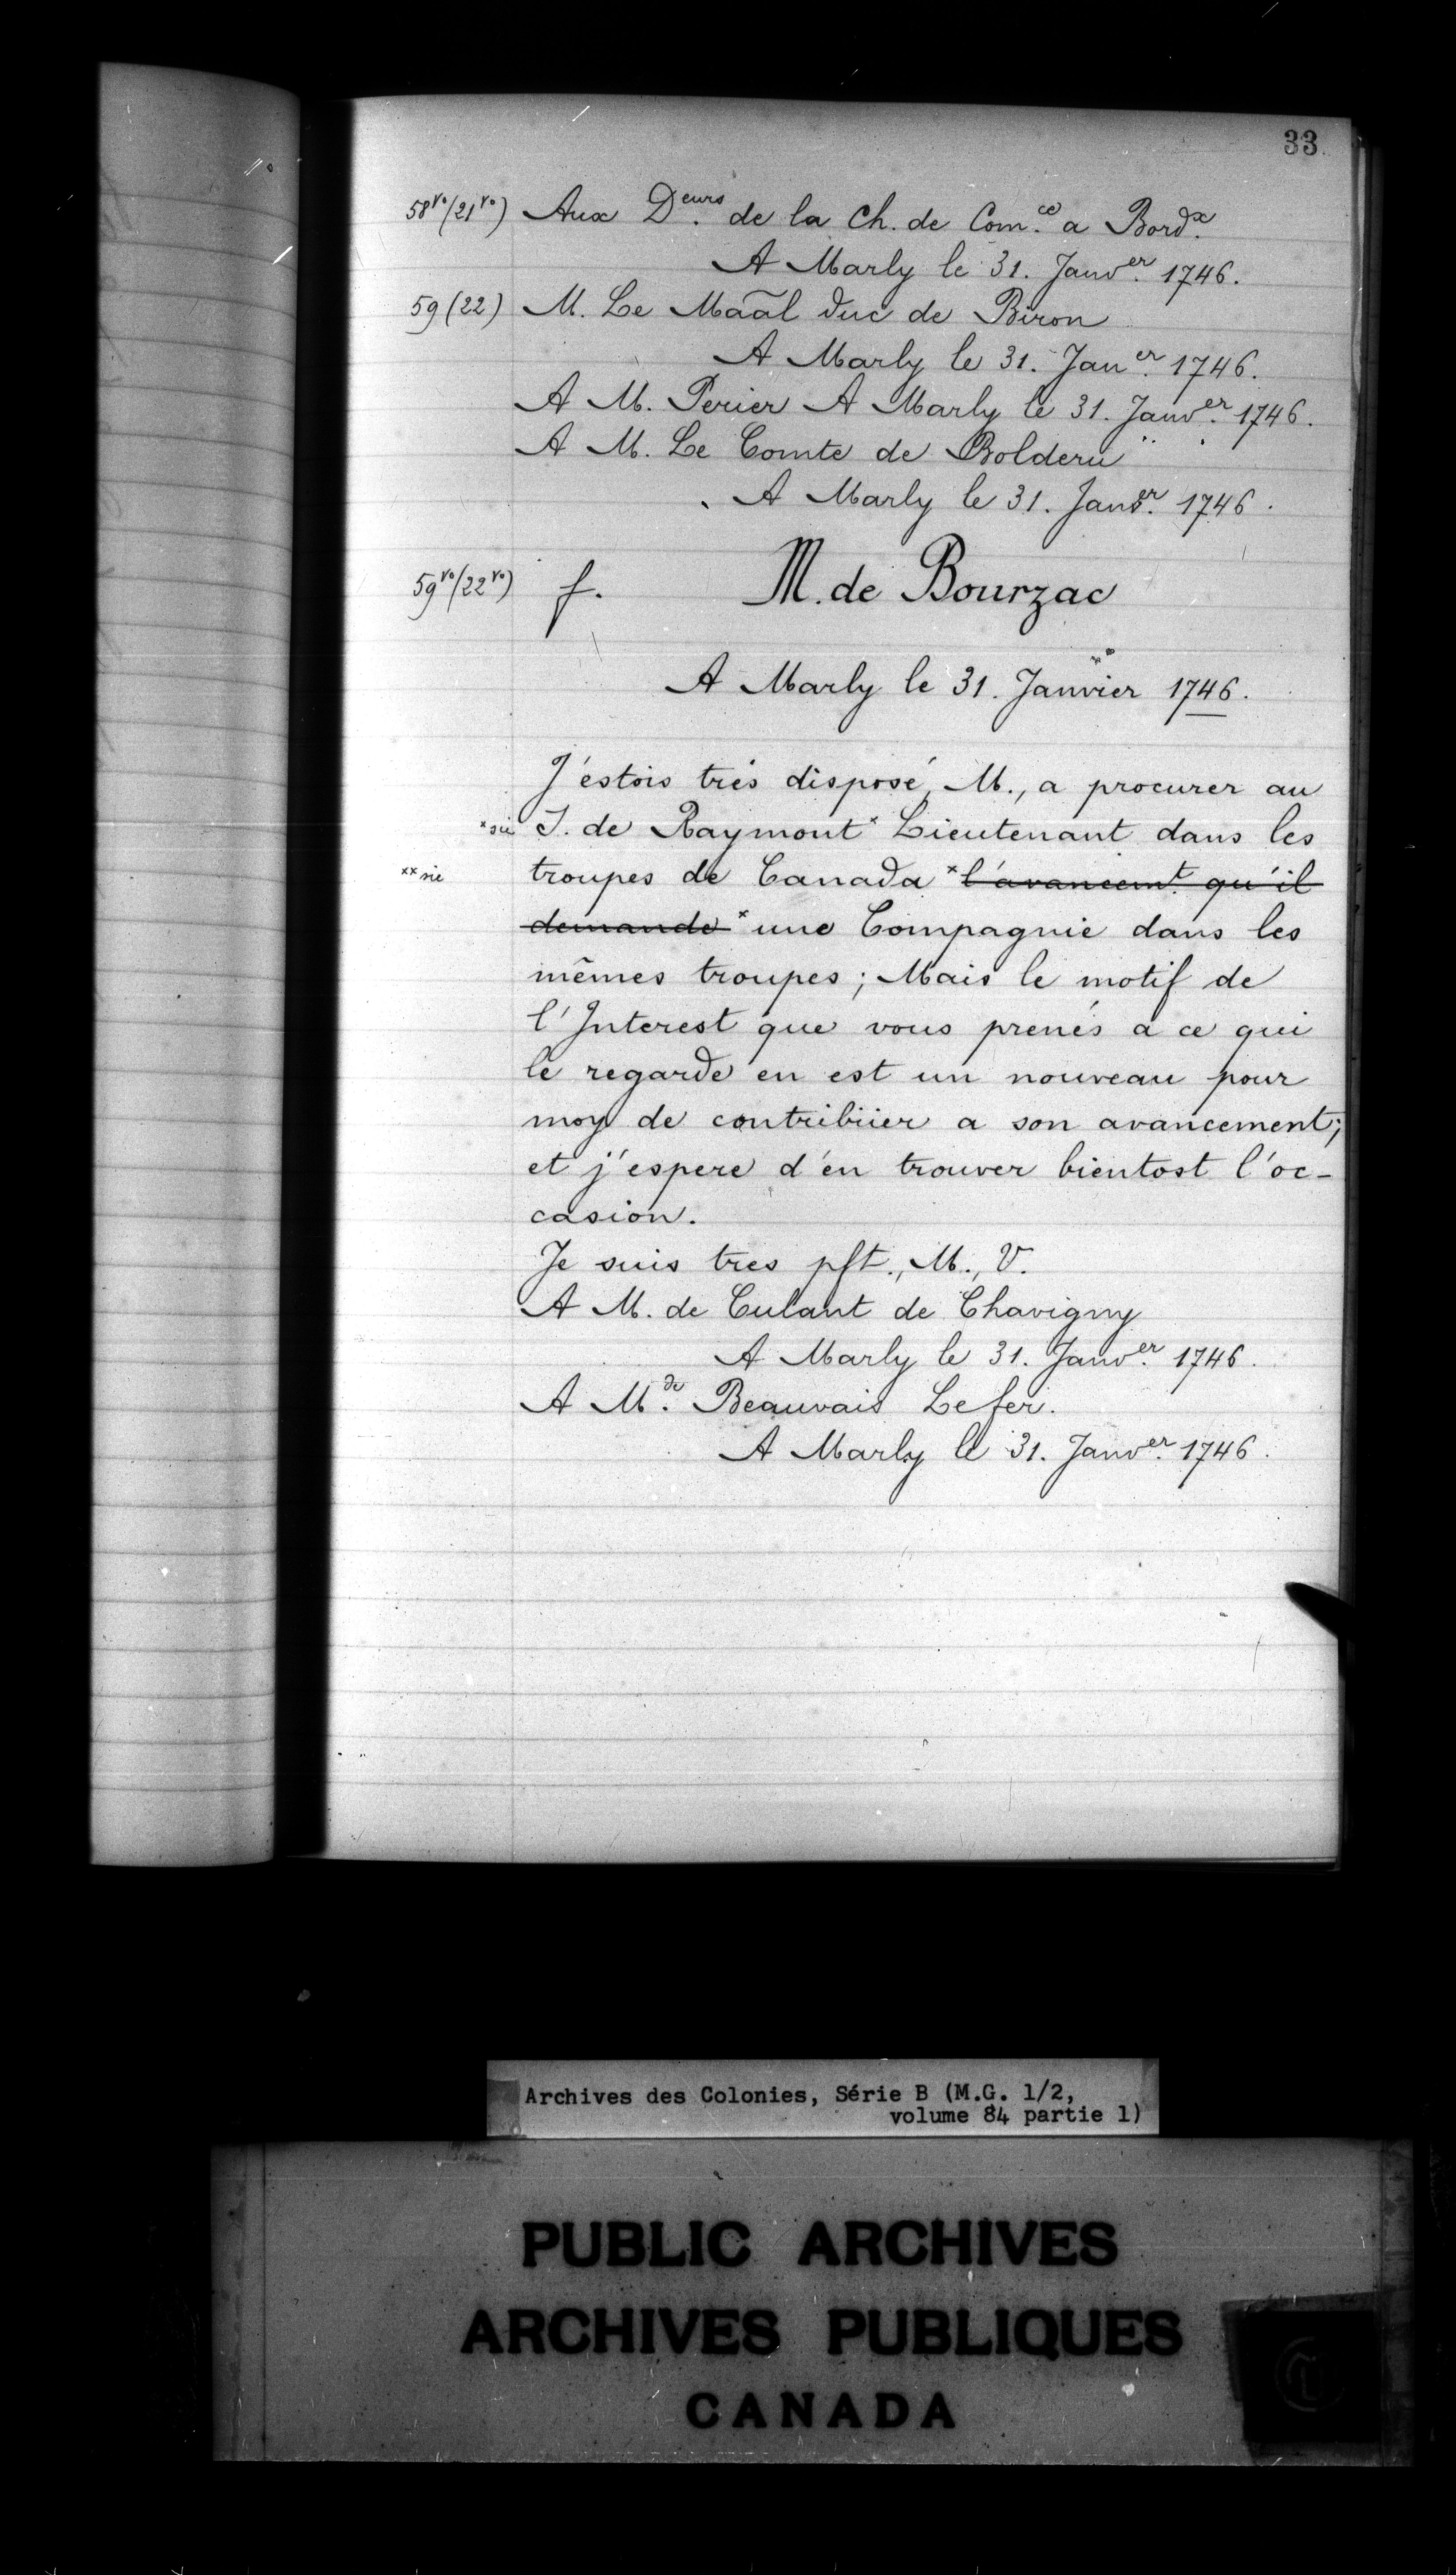 33
58vo/21vo) Aux Deurs. de la Ch. de Com.ce a Bordx.
A Marly le 31. Janver. 1746.
59 (22) M. Le Maãl duc de Biron
A Marly le 31. Janer. 1746.
A M. Perier A Marly le 31. Janver. 1746.
A M. Le Comte de Bolderu
A Marly le 31. Janver. 1746.
59vo/22vo) f. M. de Bourzac
A Marly le 31. Janvier 1746.
J'éstois trés disposé, M., a procurer au
*sic S. de Raymont* Lieutenant dans les
**sic troupes de Canada *l'avancemt. qu'il
demande* une Compagnie dans les
mêmes troupes; Mais le motif de
l'Interest que vous prenés a ce qui
le regarde en est un nouveau pour
moy de contribüer a son avancement;
et j'espere d'en trouver bientost l'oc-
casion.
Je suis tres pft., M., V.
A M. de Culant de Chavigny
A Marly le 31. Janver. 1746.
A Mde. Beauvais Lefer.
A Marly le 31. Janver. 1746.
Archives des Colonies, Série B (M.G. 1/2,
volume 84 partie 1)
PUBLIC ARCHIVES
ARCHIVES PUBLIQUES
CANADA